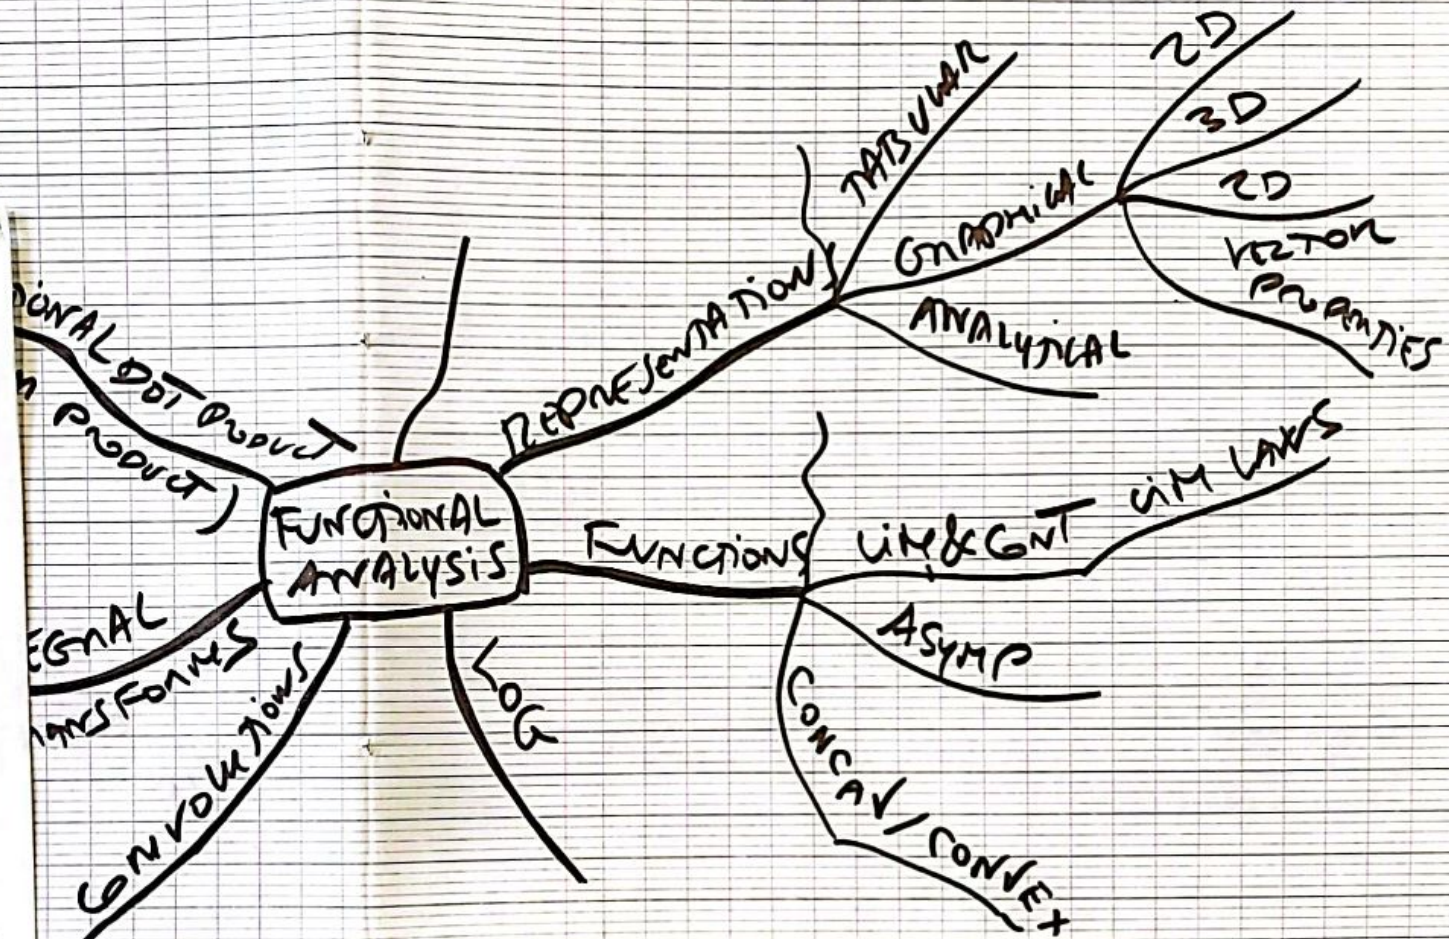 FUNCTIONAL
ANALYSIS
REPRESENTATIONS
TABULAR
GRAPHICAL
2D
3D
2D
VECTOR
PROPERTIES
ANALYTICAL
FUNCTIONS
LIM & CONT
LIM LAWS
ASYMP
CONCAV/CONVEX
LOG
CONVOLUTIONS
EGRAL
ANSFORMS
IONAL DOT PRODUCT
PRODUCT)